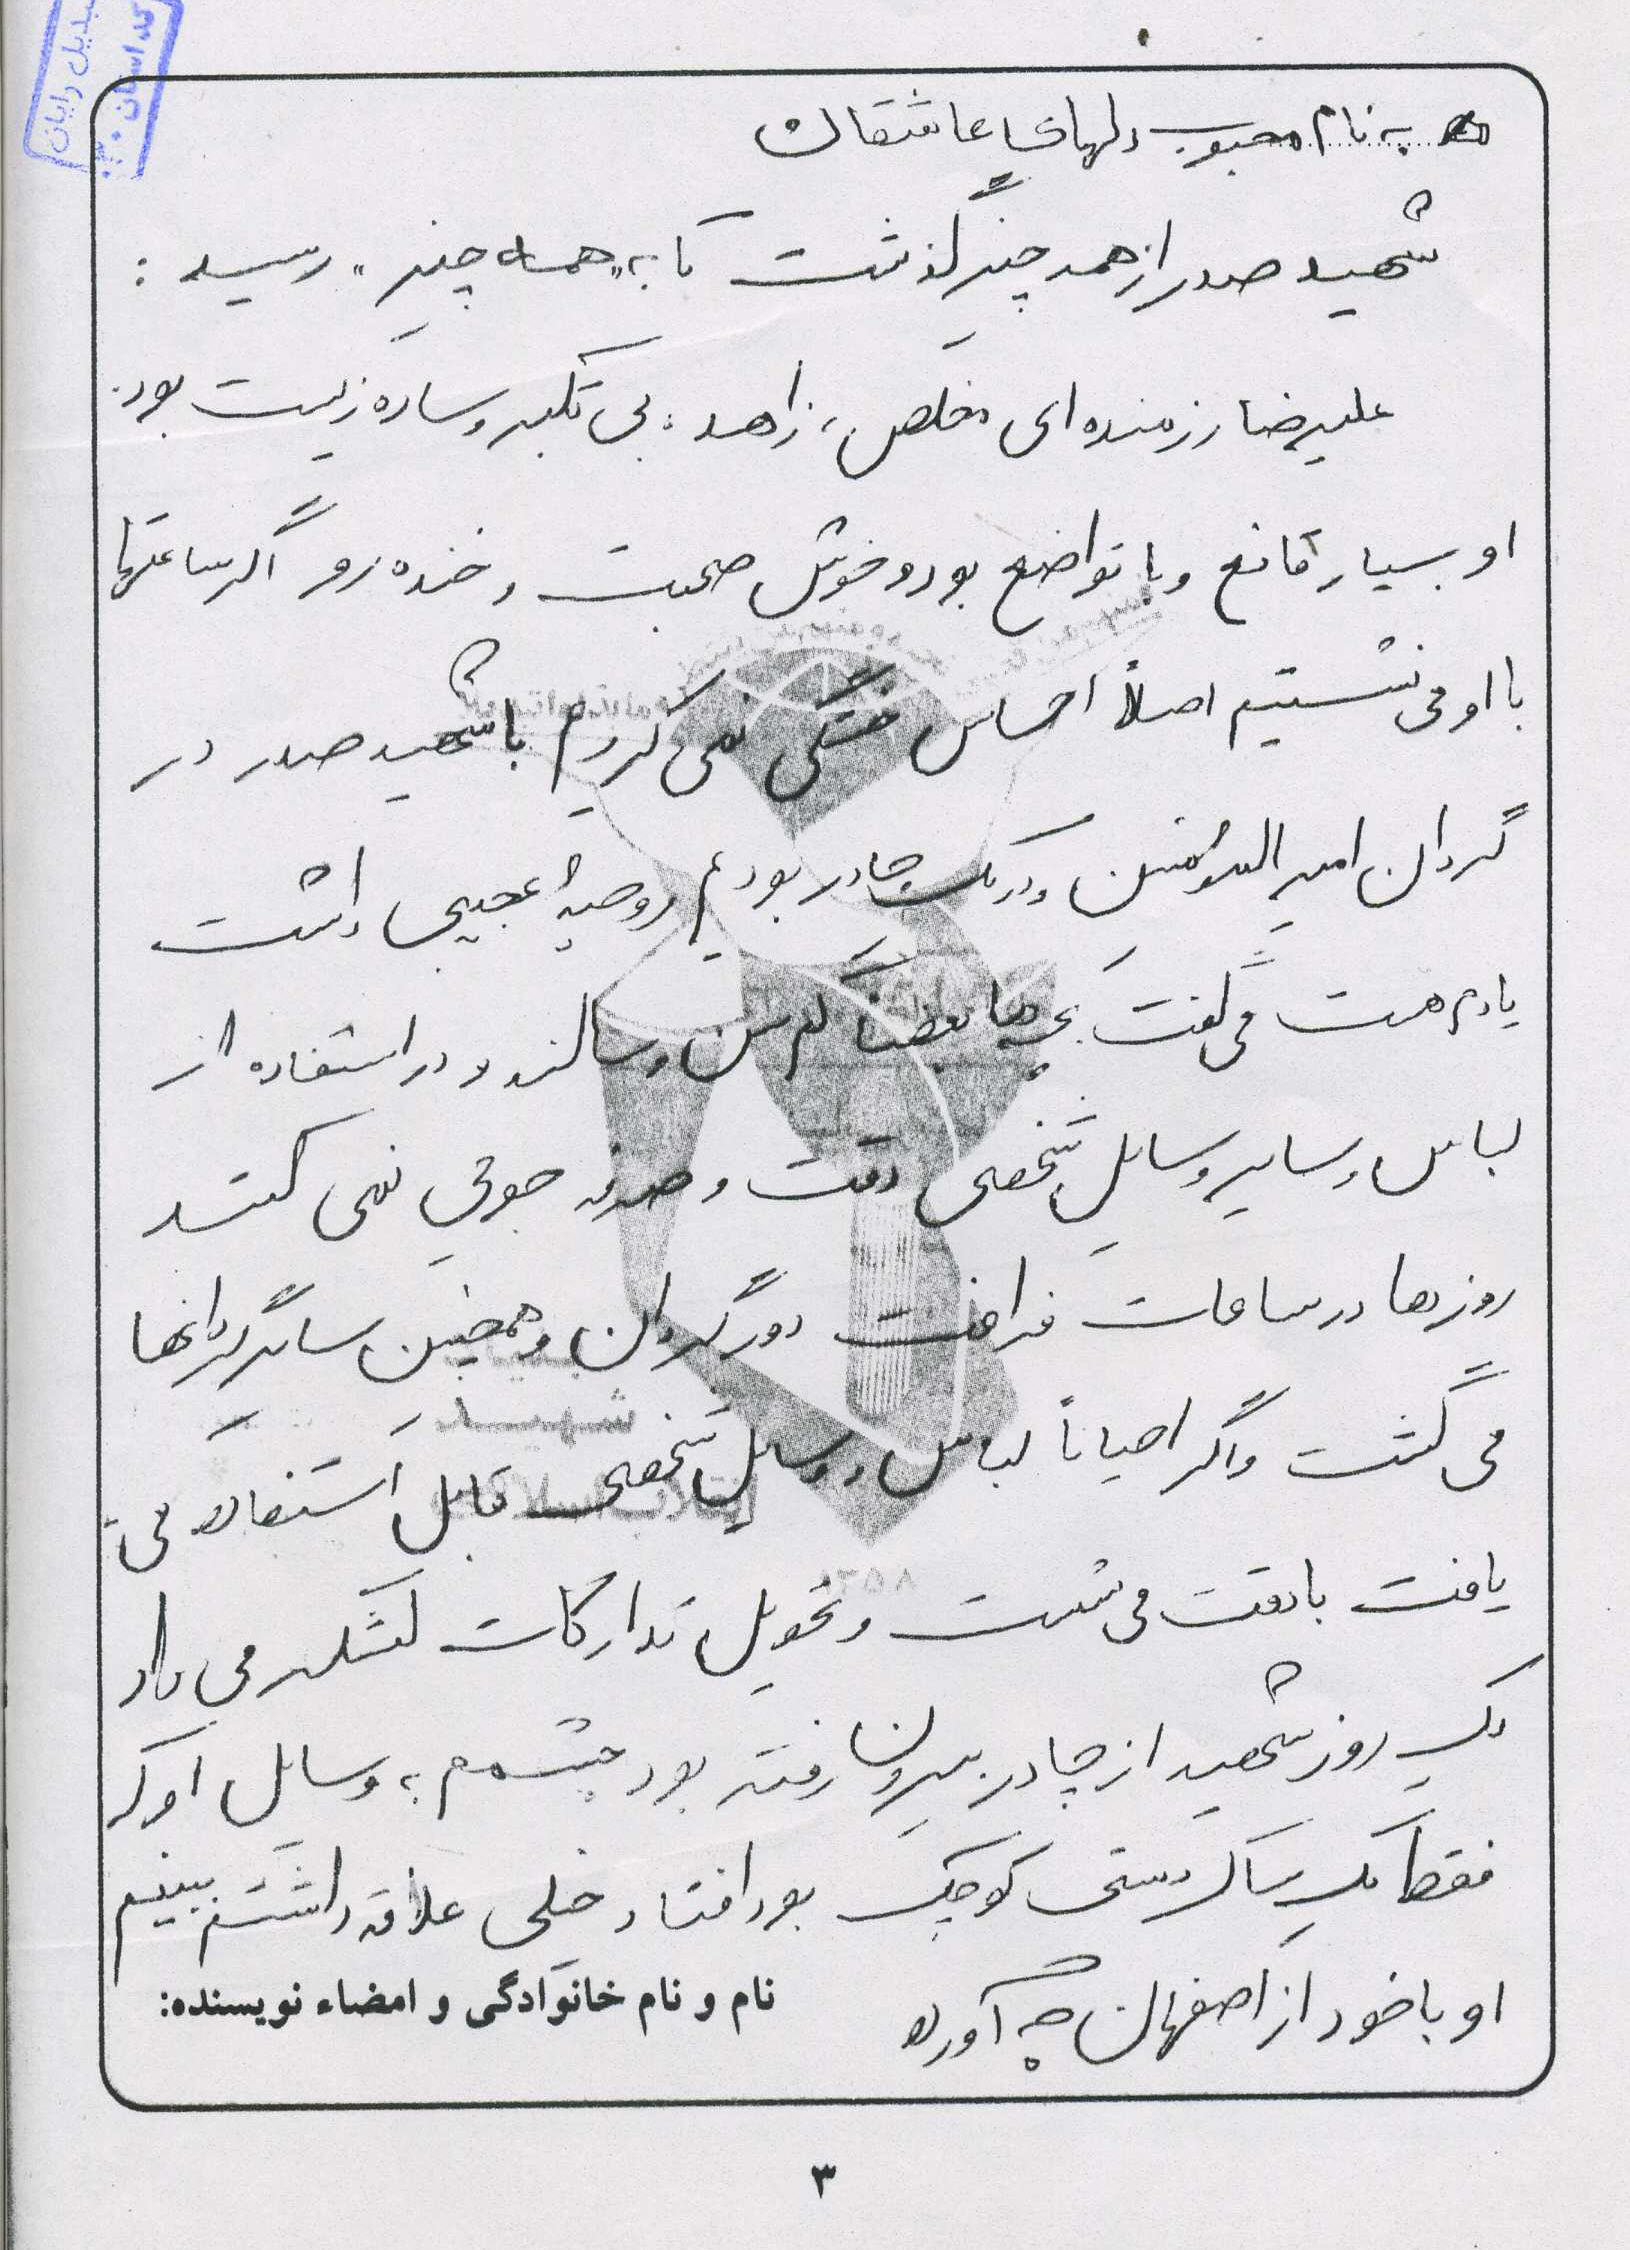 به نام محبوب دلهای عاشقان
شهید صدر از همه چیز گذشت تا به "همه چیز" رسید :
علیرضا رزمنده ای مخلص، زاهد، بی تکبر و ساده زیست بود.
او بسیار قانع و با تواضع بود و خوش صحبت و خنده رو اگر ساعتها
با او می نشستیم اصلاً احساس خستگی نمی کردیم با شهید صدر در
گردان امیرالمؤمنین و در یک چادر بودیم روحیه عجیبی داشت
یادم هست می گفت بچه ها بعضاً کم سن و سالند و در استفاده از
لباس و سایر وسایل شخصی دقت و صرفه جویی نمی کنند
روزها در ساعات فراغت دور گردان و همچنین سایر گردانها
می گشت و اگر احیاناً لباس و وسایل شخصی قابل استفاده می
یافت با دقت می شست و تحویل تدارکات لشکر می داد
یک روز شهید از چادر بیرون رفته بود چشمم به وسایل او که
فقط یک ساک دستی کوچک بود افتاد خیلی علاقه داشتم ببینم
او با خود از اصفهان چه آورده
نام و نام خانوادگی و امضاء نویسنده:
۳
کد استان ۳۰
شهید
۱۳۵۸